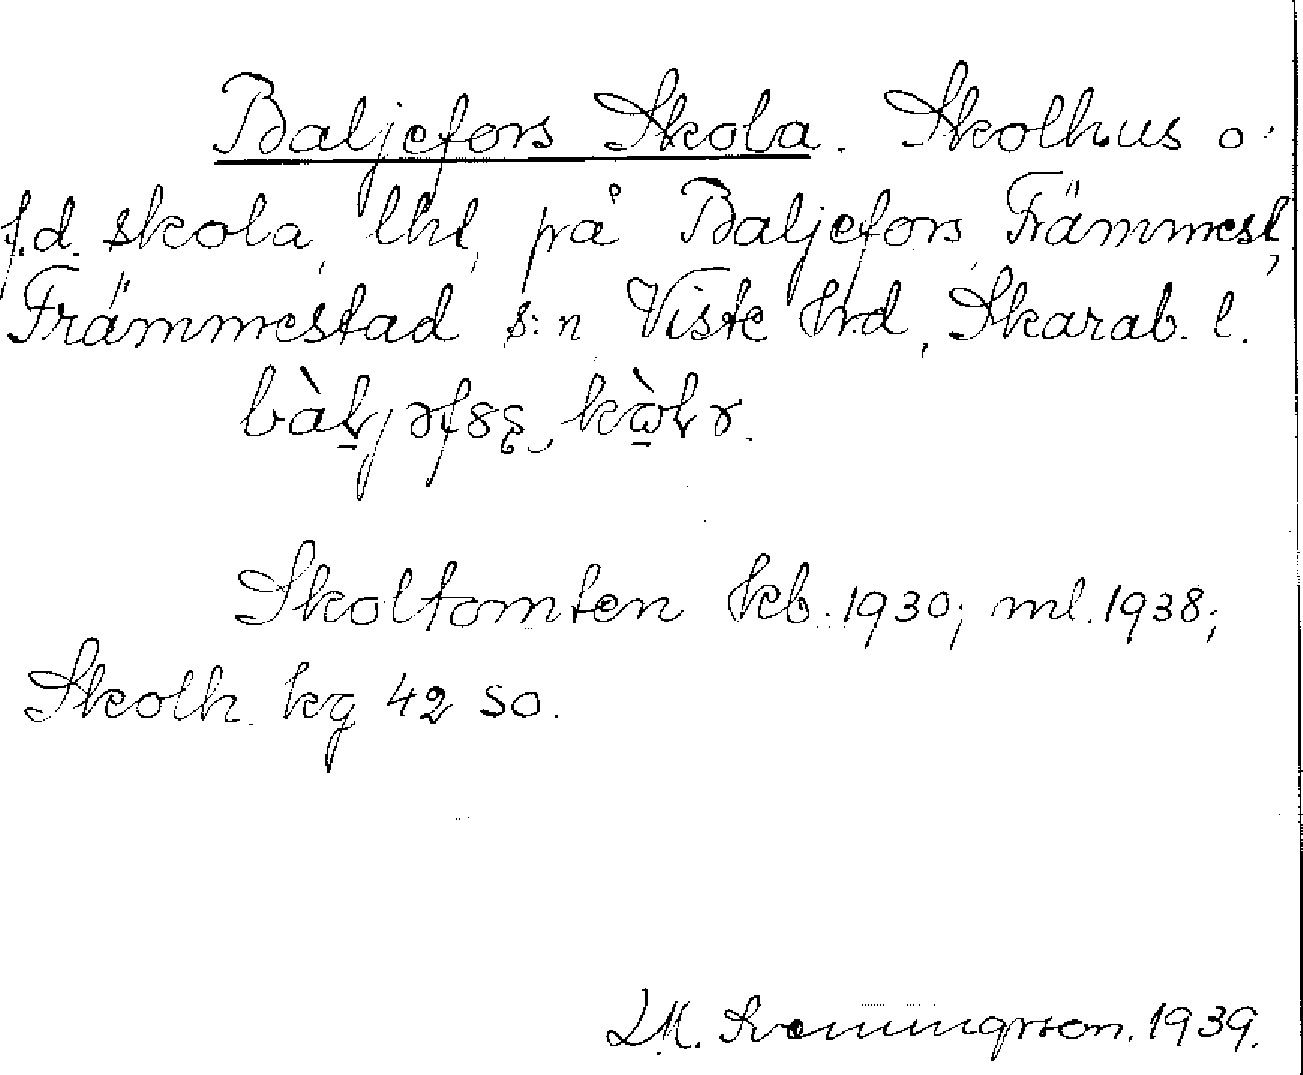 Baljefors Skola. Skolhus o.
f.d. skola, lht på Baljefors, Främmest,
Främmestad s:n, Viste hrd, Skarab. l.
Skoltomten kb. 1930; ml. 1938;
Skolh. kg 42 SO.
L.M. Svenningsson. 1939.